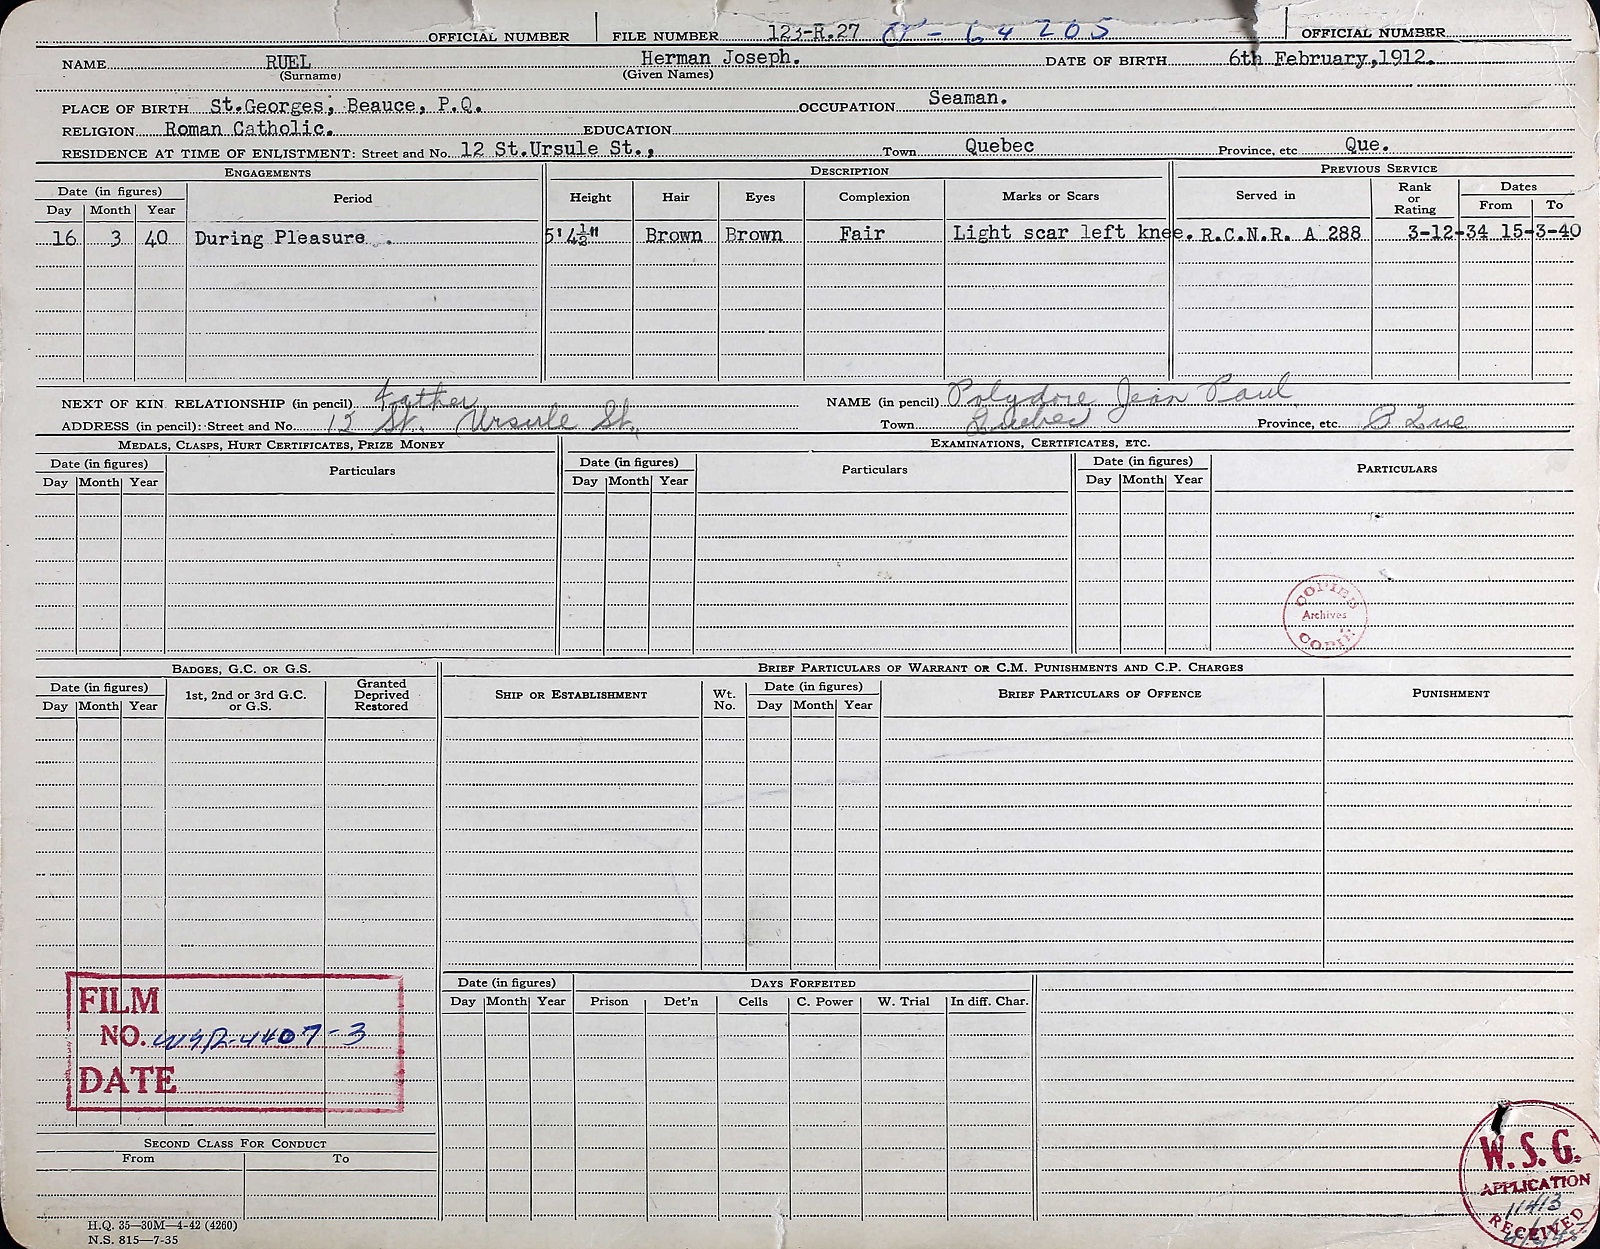 OFFICIAL NUMBER FILE NUMBER 123-R.27 64205 OFFICIAL NUMBER
NAME RUEL Herman Joseph. DATE OF BIRTH 6th February,1912.
(Surname) (Given Names)
PLACE OF BIRTH St.Georges, Beauce, P.Q. OCCUPATION Seaman.
RELIGION Roman Catholic. EDUCATION
RESIDENCE AT TIME OF ENLISTMENT: Street and No. 12 St.Ursule St., Town Quebec Province, etc Que.
ENGAGEMENTS DESCRIPTION PREVIOUS SERVICE
Date (in figures) Period Height Hair Eyes Complexion Marks or Scars Served in Rank or Rating Dates
Day Month Year From To
16 3 40 During Pleasure . 5'4½" Brown Brown Fair Light scar left knee. R.C.N.R. A 288 3-12-34 15-3-40
NEXT OF KIN RELATIONSHIP (in pencil) Father NAME (in pencil) Polydore Jean Paul
ADDRESS (in pencil): Street and No. 12 St. Ursule St. Town Quebec Province, etc. Que
MEDALS, CLASPS, HURT CERTIFICATES, PRIZE MONEY EXAMINATIONS, CERTIFICATES, ETC.
Date (in figures) Particulars Date (in figures) Particulars Date (in figures) PARTICULARS
Day Month Year Day Month Year Day Month Year
COPIES
Archives
COPIE
BADGES, G.C. OR G.S. BRIEF PARTICULARS OF WARRANT OR C.M. PUNISHMENTS AND C.P. CHARGES
Date (in figures) 1st, 2nd or 3rd G.C. or G.S. Granted Deprived Restored SHIP OR ESTABLISHMENT Wt. No. Date (in figures) BRIEF PARTICULARS OF OFFENCE PUNISHMENT
Day Month Year Day Month Year
Date (in figures) DAYS FORFEITED
Day Month Year Prison Det'n Cells C. Power W. Trial In diff. Char.
FILM
NO. WSR-4407-3
DATE
SECOND CLASS FOR CONDUCT
From To
W.S.G.
APPLICATION
11413
RECEIVED
H.Q. 35—30M—4-42 (4260)
N.S. 815—7-35